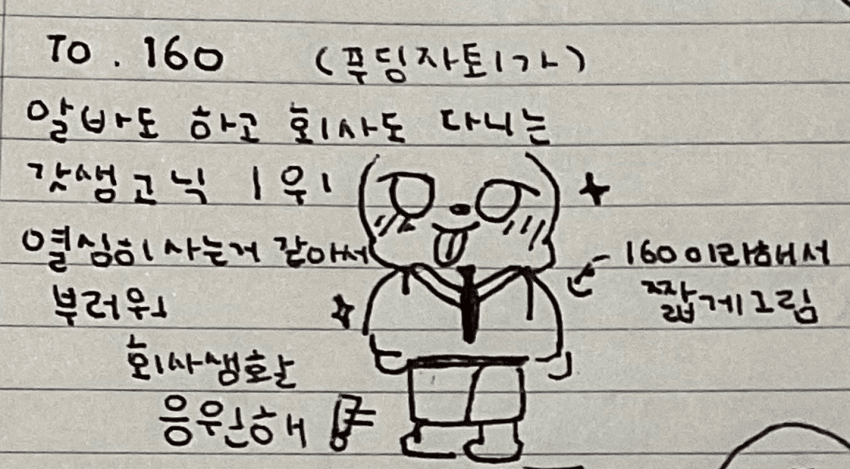 TO. 160 (푸딩자토ㅣ가)
알바도 하고 회사도 다니는
갓생고닉 1위
열심히사는거 같아서
부러워
회사생활
응원해
160이라해서
짧게그림